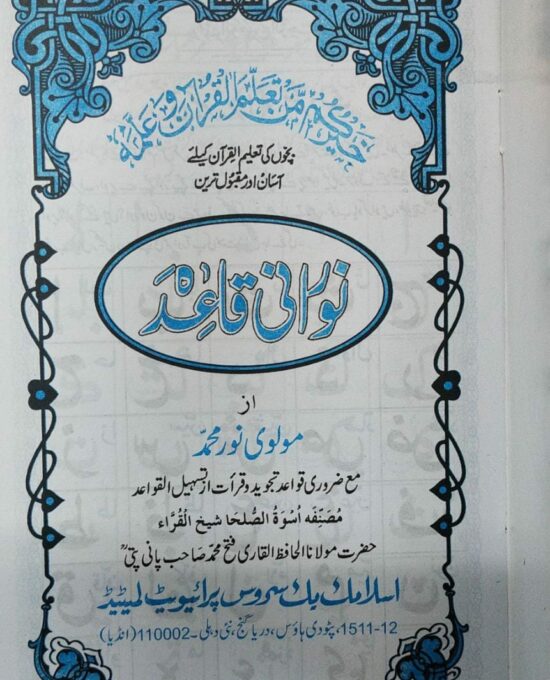 خيركم من تعلم القرآن وعلمه
بچوں کی تعلیم القرآن کیلئے
آسان اور مقبول ترین
نورانی قاعدہ
از
مولوی نور محمدؒ
مع ضروری قواعد تجوید و قرأت از تسہیل القواعد
مصنفہ اسوۃ الصلحا شیخ القراء
حضرت مولانا الحافظ القاری فتح محمد صاحب پانی پتیؒ
اسلامک بک سروس پرائیویٹ لمیٹیڈ
1511-12، پٹودی ہاؤس، دریا گنج، نئی دہلی۔110002 (انڈیا)